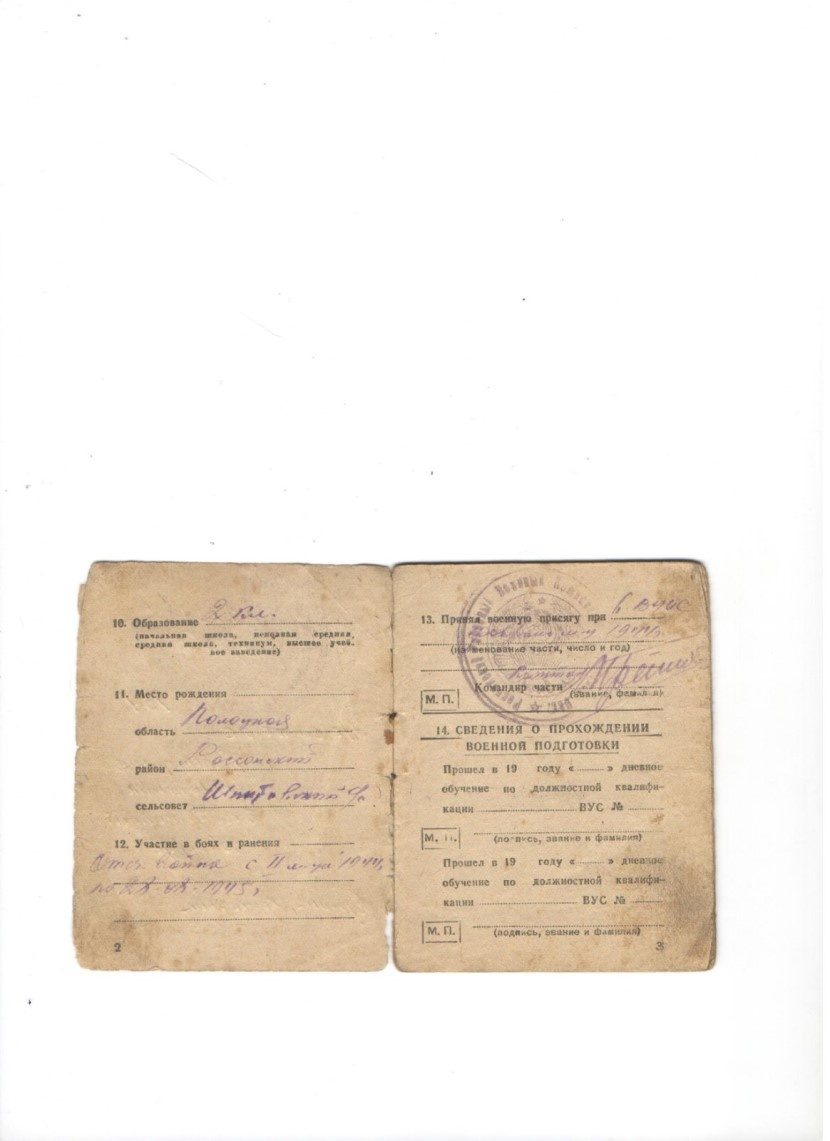 10. Образование 2 кл.
(начальная школа, неполная средняя,
средняя школа, техникум, высшее учеб-
ное заведение)
11. Место рождения
область Полоцкая
район Россонский
сельсовет
12. Участие в боях и ранения
война с 11 1944
по 1945 г
2
13. Принял военную присягу при
1944
(наименование части, число и год)
Командир части
М. П.
(звание, фамилия)
14. СВЕДЕНИЯ О ПРОХОЖДЕНИИ
ВОЕННОЙ ПОДГОТОВКИ
Прошел в 19 году « » дневное
обучение по должностной квалифи-
кации ВУС №
М. П.
(подпись, звание и фамилия)
Прошел в 19 году « » дневное
обучение по должностной квалифи-
кации ВУС №
М. П.
(подпись, звание и фамилия)
3